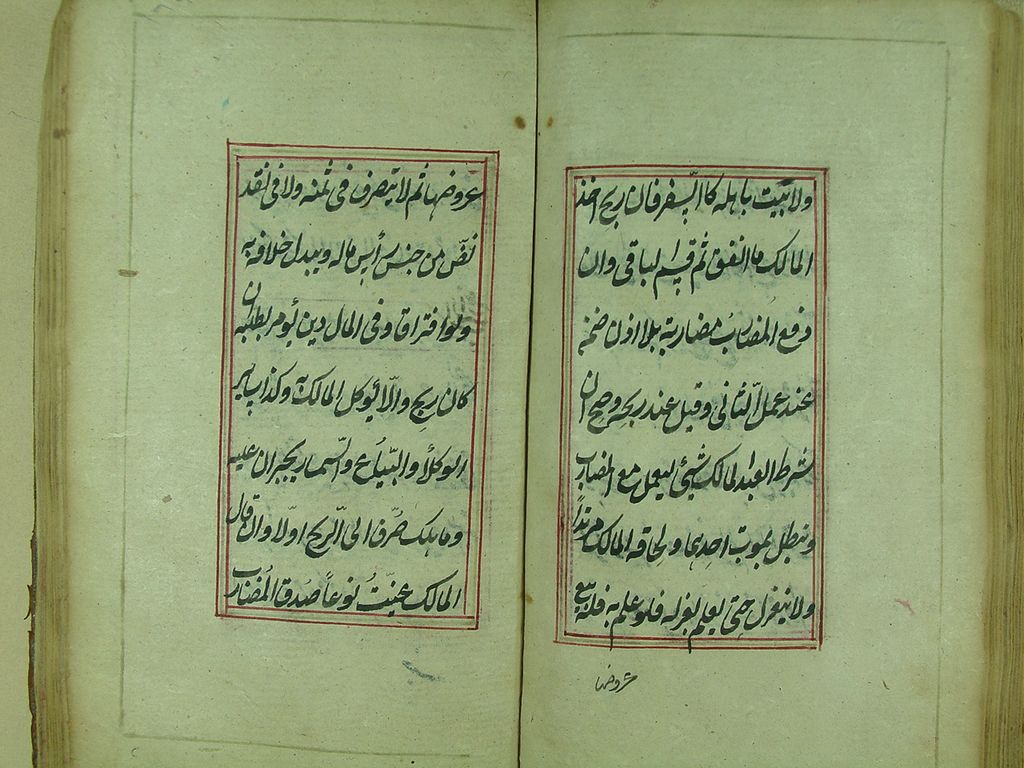 ولا يبيت باهله كالسفر فان ربح اخذ
المالك ما انفق ثم قسم الباقي وان
دفع المضارب مضاربة بلا اذن ضمنه
عند عمل الثاني وقيل عند ربحه وصح ان
شرط العبد المالك شيئ ليعمل مع المضارب
وتبطل بموت احدهما ولحاقه المالك مرتداً
ولا ينعزل حتى يعلم بعزله فلو علم به فله بيع
عروضها
عروضها ثم لا يتصرف في ثمنه ولا في نقد
نقض من جنس رأس ماله ويبدل خلافه به
ولو افترقا وفي المال دين يؤمر بطلبه ان
كان ربح والا يوكل المالك به وكذا سائر
الوكلاء والبياع والسمسار يجبران عليه
وما هلك صرف الى الربح اولا وان قال
المالك عينتُ نوعاً صدق المضارب